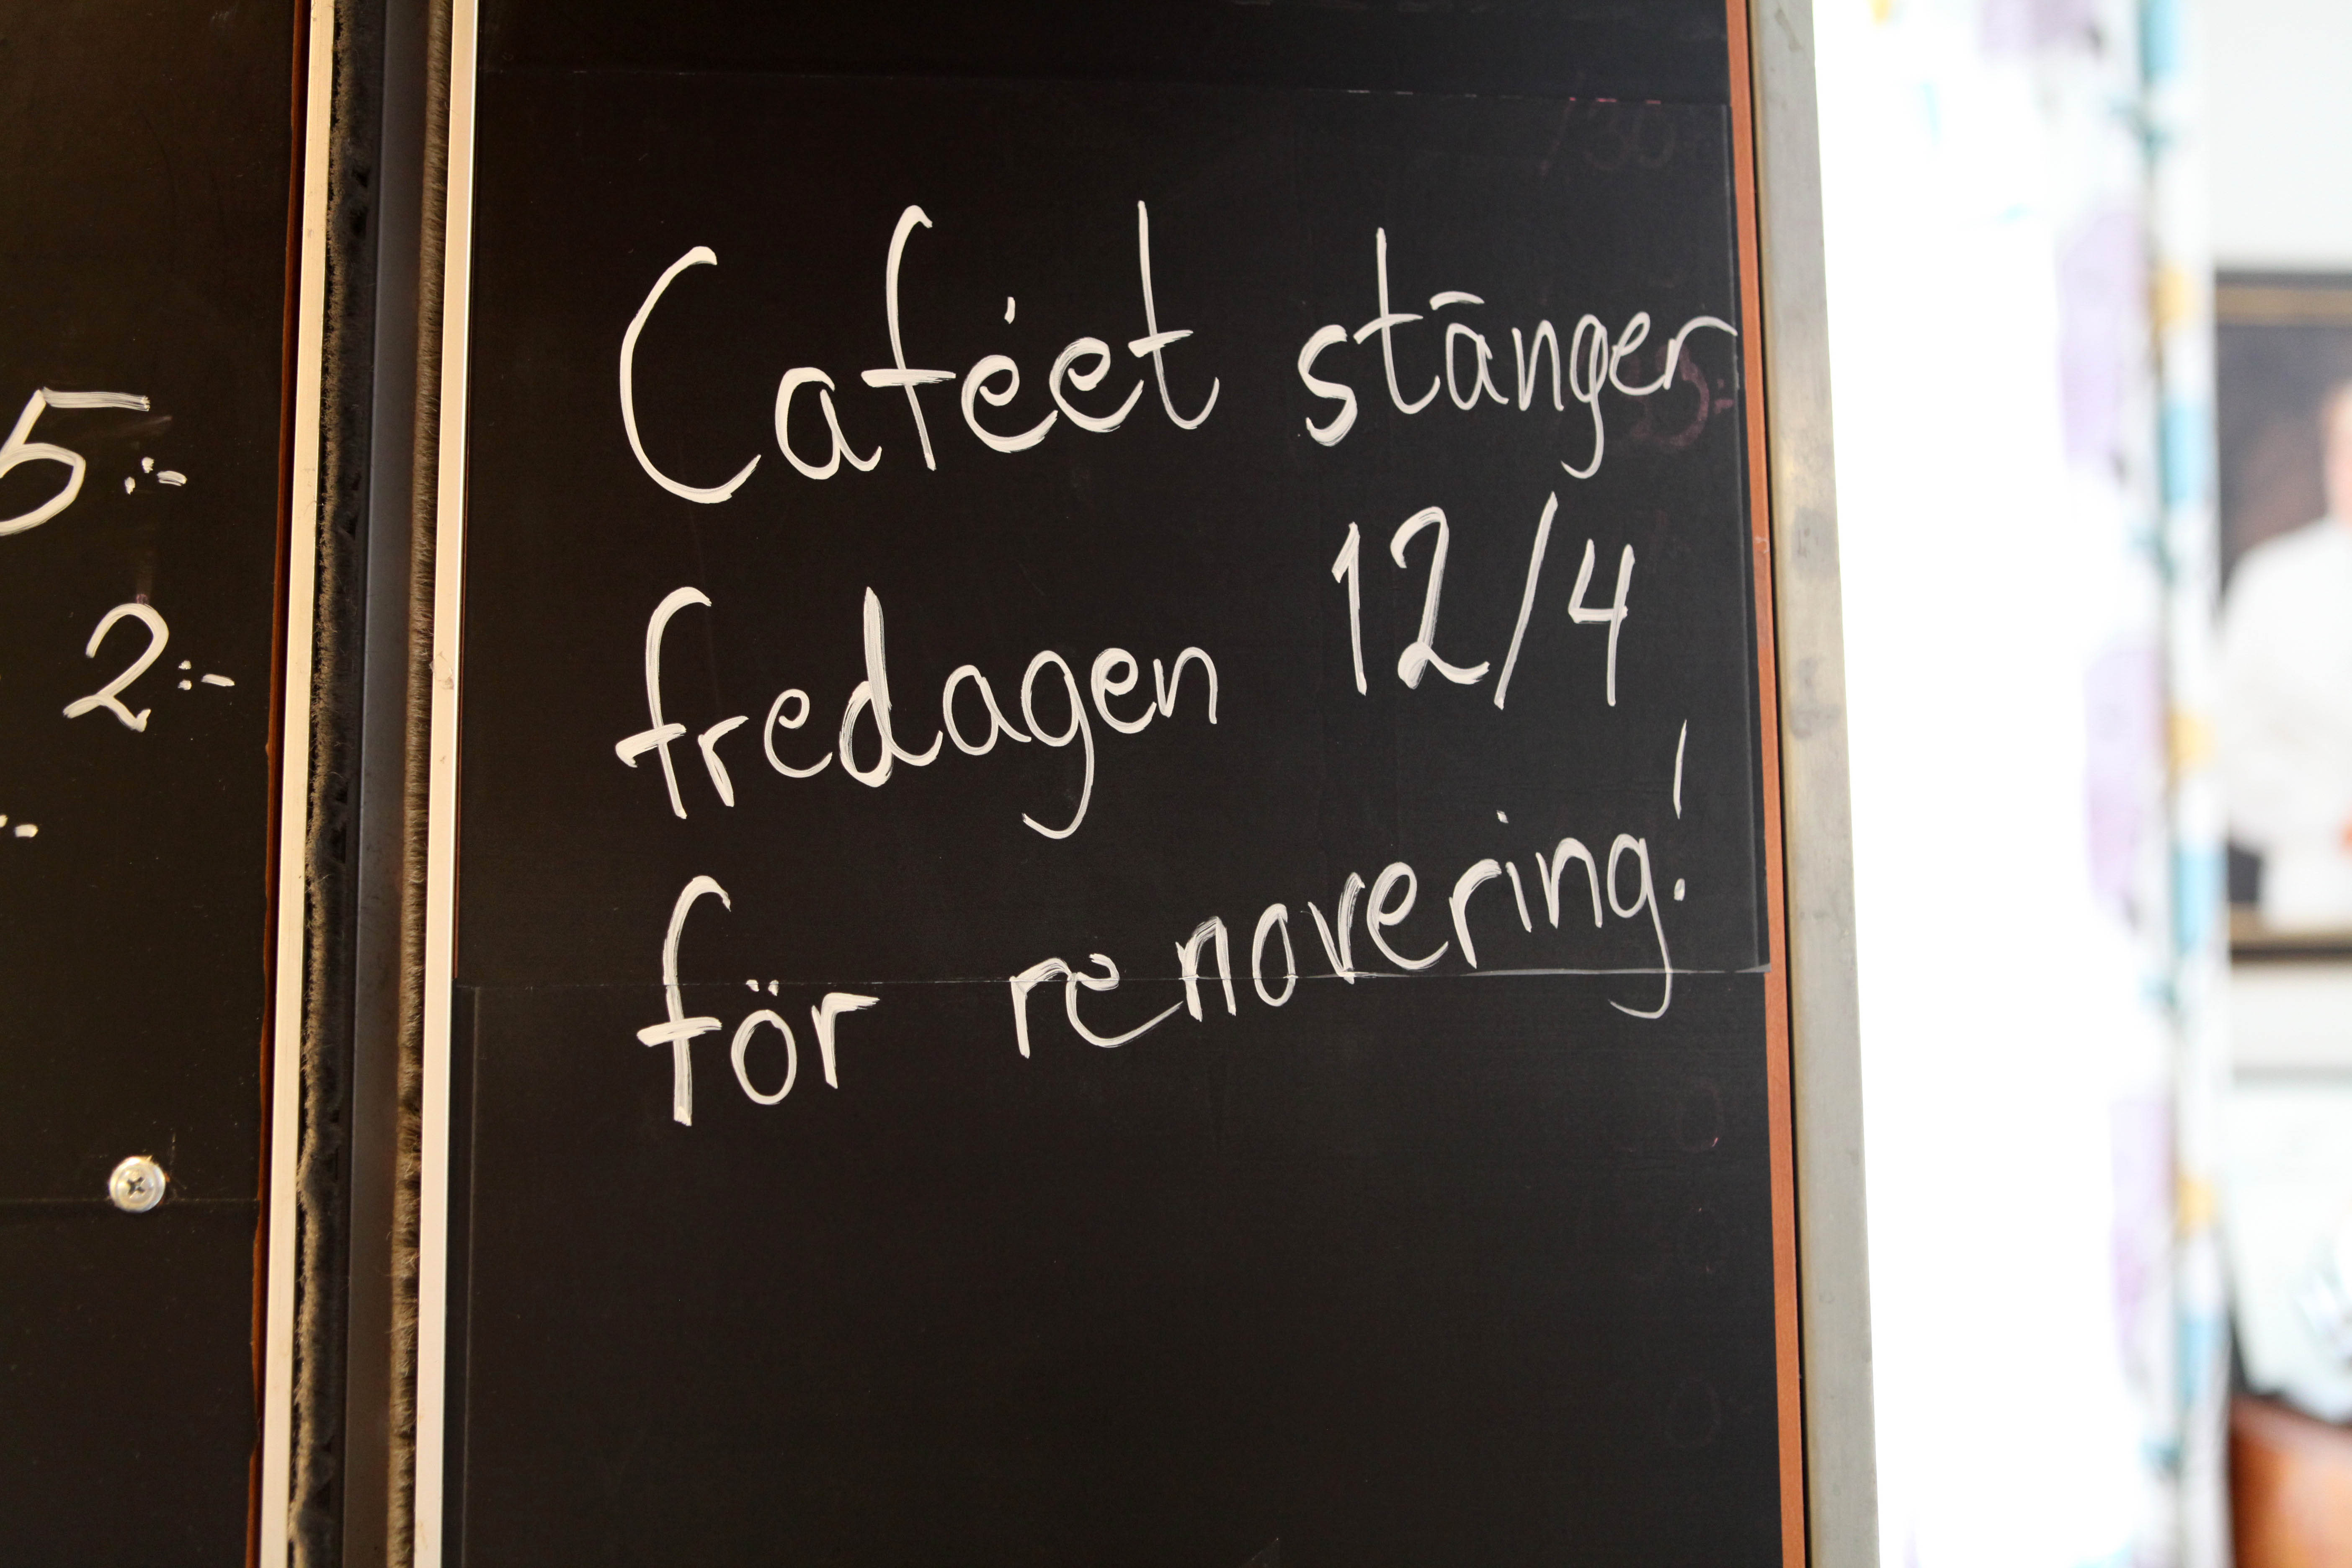 5:-
2:-
Caféet stänger
fredagen 12/4
för renovering!